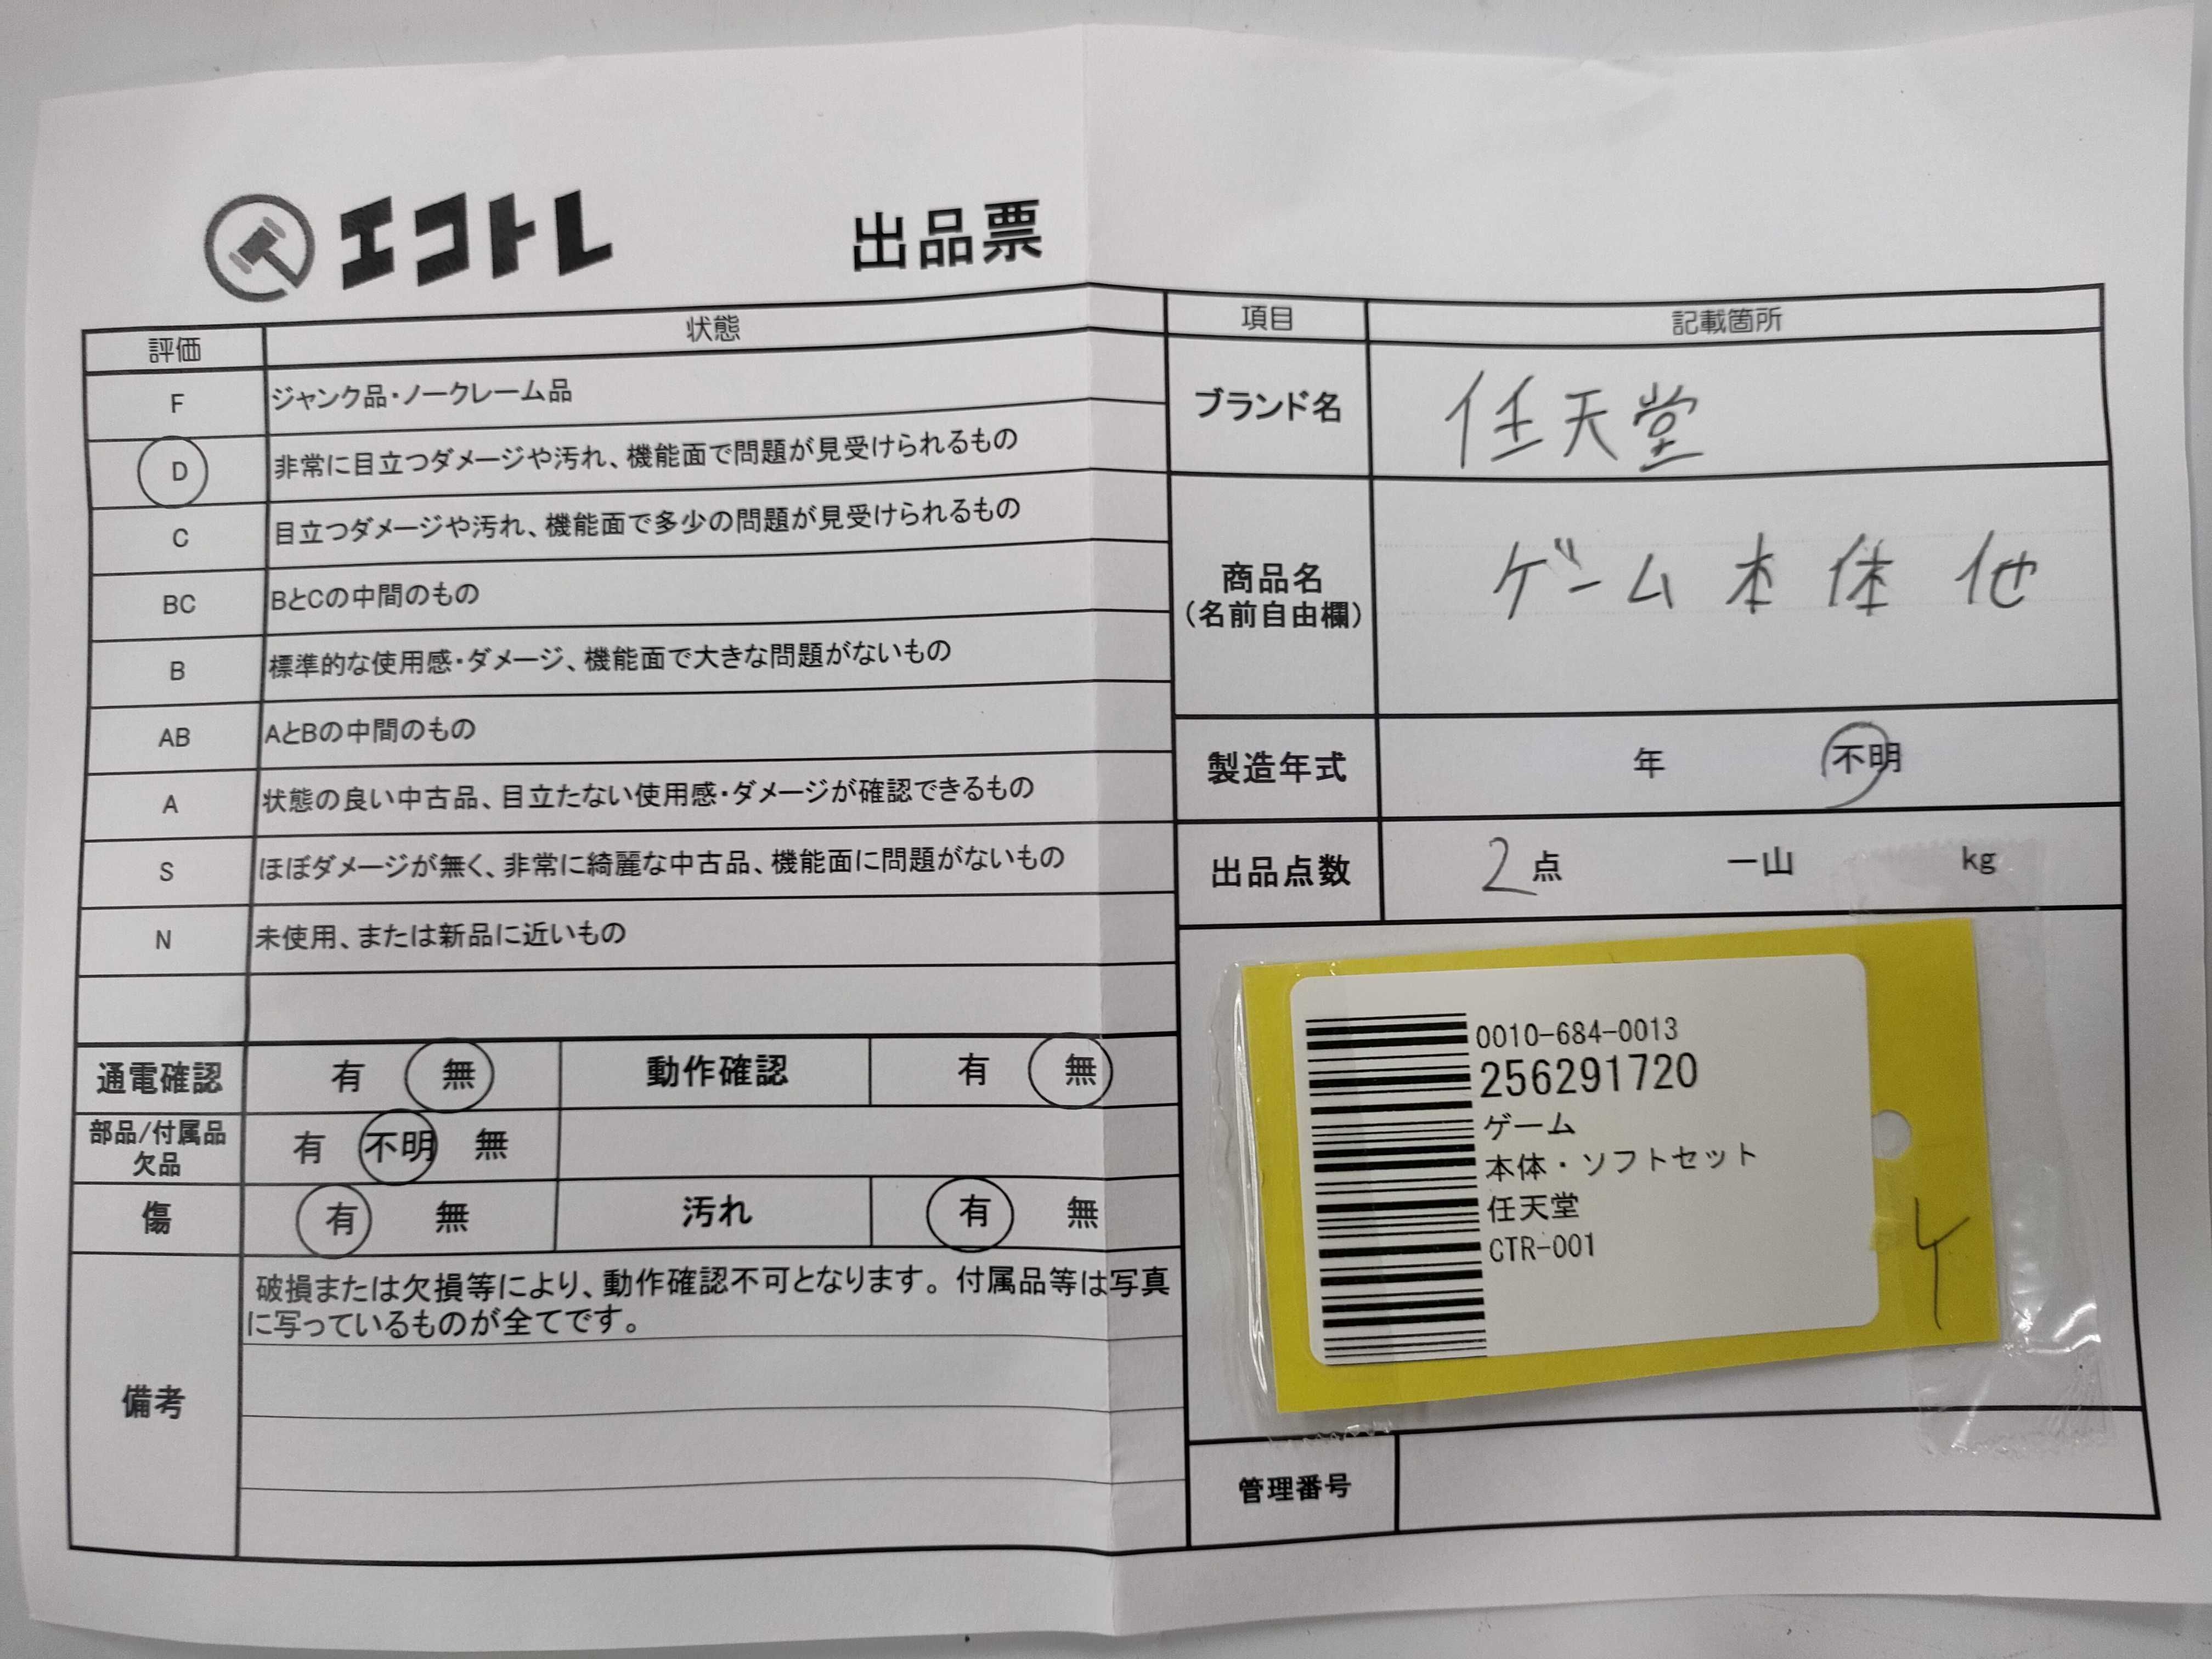 エコトレ
出品票
評価 状態
F ジャンク品・ノークレーム品
D 非常に目立つダメージや汚れ、機能面で問題が見受けられるもの
C 目立つダメージや汚れ、機能面で多少の問題が見受けられるもの
BC BとCの中間のもの
B 標準的な使用感・ダメージ、機能面で大きな問題がないもの
AB AとBの中間のもの
A 状態の良い中古品、目立たない使用感・ダメージが確認できるもの
S ほぼダメージが無く、非常に綺麗な中古品、機能面に問題がないもの
N 未使用、または新品に近いもの
通電確認 有 無 動作確認 有 無
部品/付属品
欠品
有 不明 無
傷 有 無 汚れ 有 無
備考
破損または欠損等により、動作確認不可となります。付属品等は写真
に写っているものが全てです。
項目 記載箇所
ブランド名 任天堂
商品名
(名前自由欄)
ゲーム本体 他
製造年式 年 不明
出品点数 2点 一山 kg
0010-684-0013
256291720
ゲーム
本体・ソフトセット
任天堂
CTR-001
管理番号